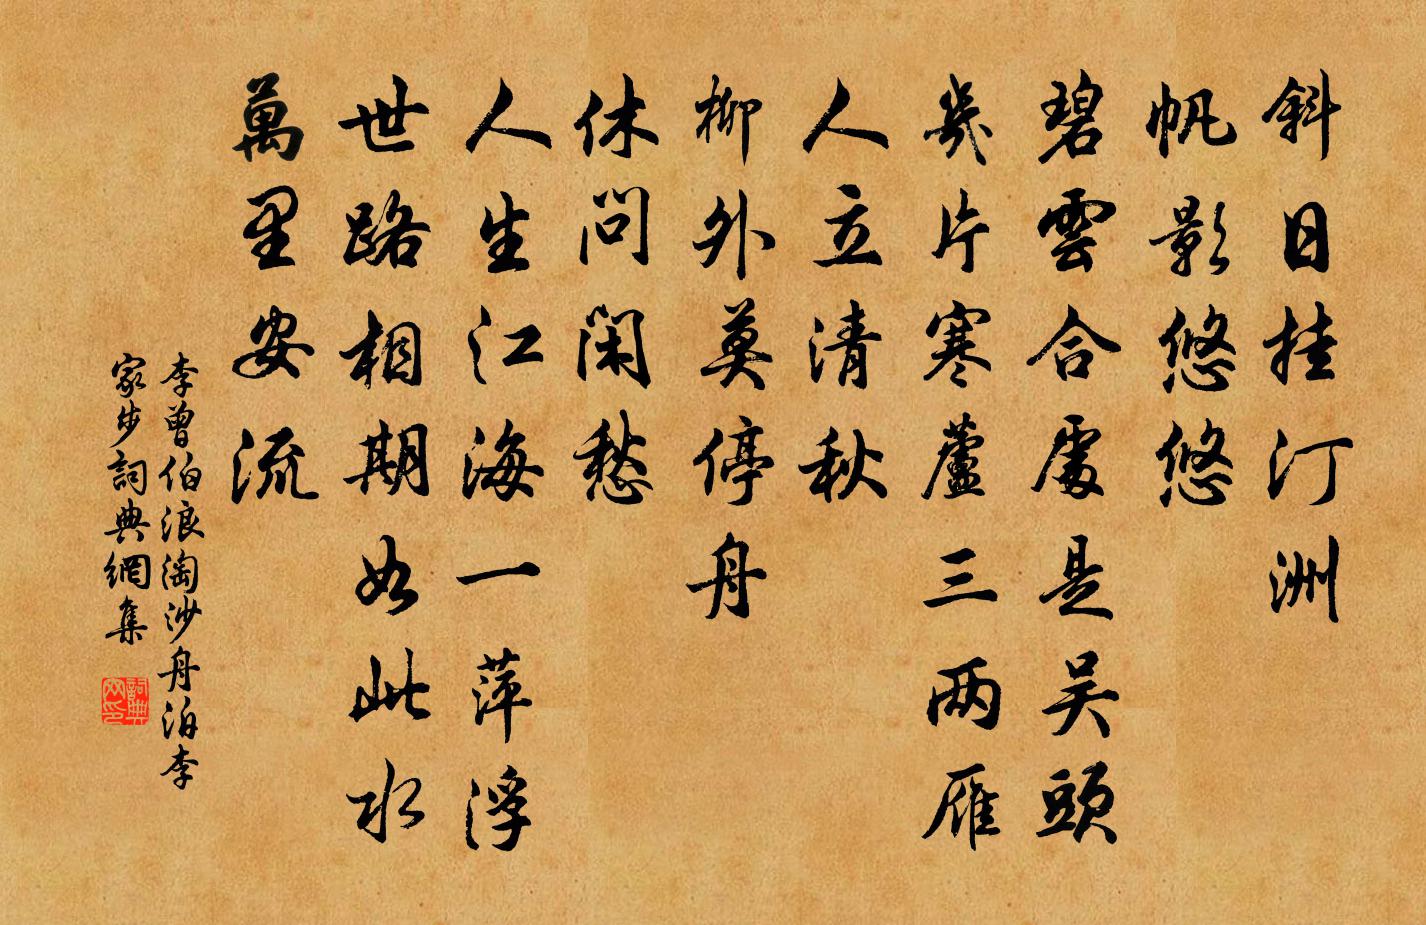 斜日挂汀洲
帆影悠悠
碧雲合處是吴頭
幾片寒蘆三两雁
人立清秋
柳外莫停舟
休問閑愁
人生江海一萍浮
世路相期如此水
萬里安流
李曾伯浪淘沙舟泊李
家步詞典網集
詞典
网印